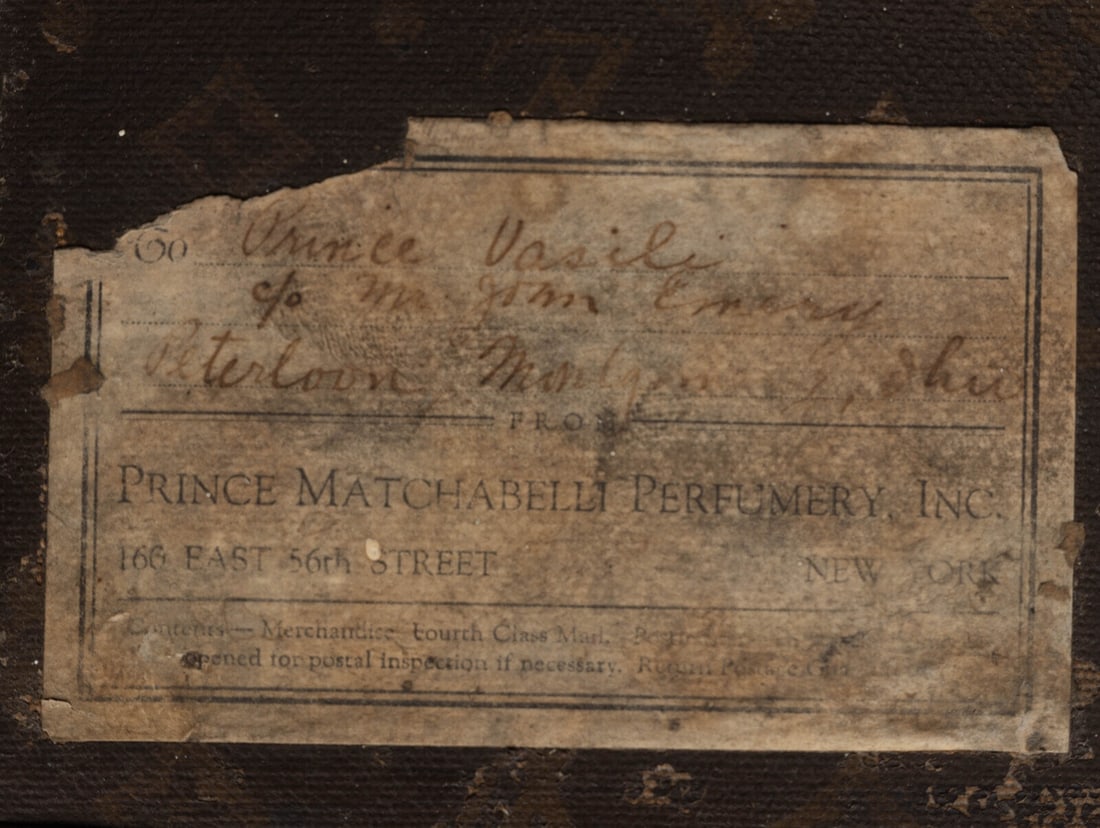 To Prince Vasili
c/o Mr. John Emery
Peterloon, Montgomery, Ohio
FROM
PRINCE MATCHABELLI PERFUMERY, INC.
160 EAST 56th STREET NEW YORK
Contents — Merchandise Fourth Class Mail.
opened for postal inspection if necessary. Return Postage